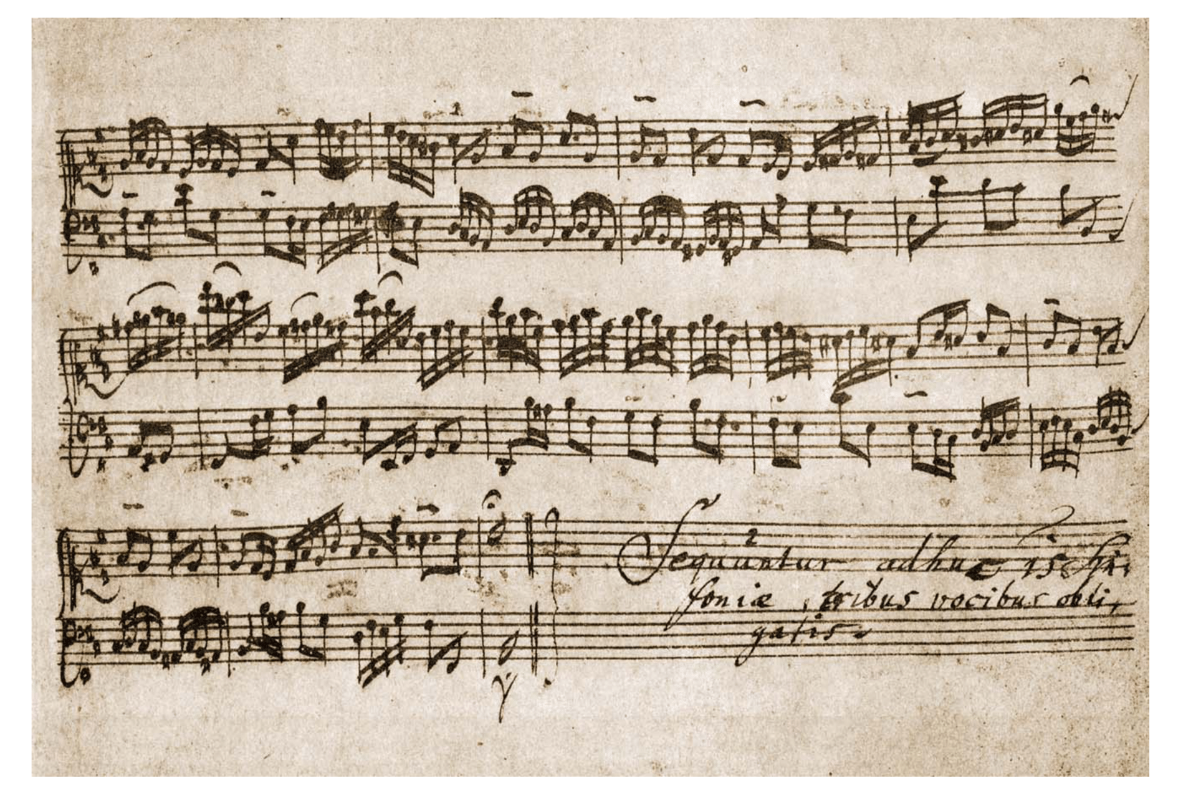 Sequuntur adhuc 15 Sin-
foniæ, tribus vocibus obli-
gatis.